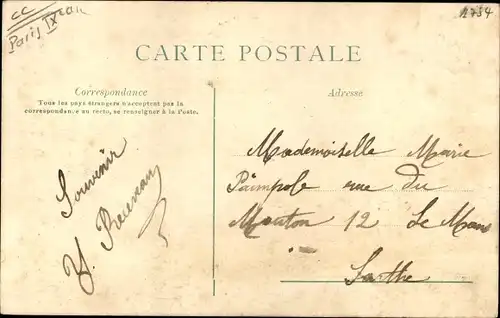 CC
Paris IX
1734
CARTE POSTALE
Correspondance
Tous les pays étrangers n'acceptent pas la
correspondance au recto, se renseigner à la Poste.
Adresse
Souvenir
Y.
Mademoiselle Marie
Paimpole rue du
Mouton 12 Le Mans
Sarthe